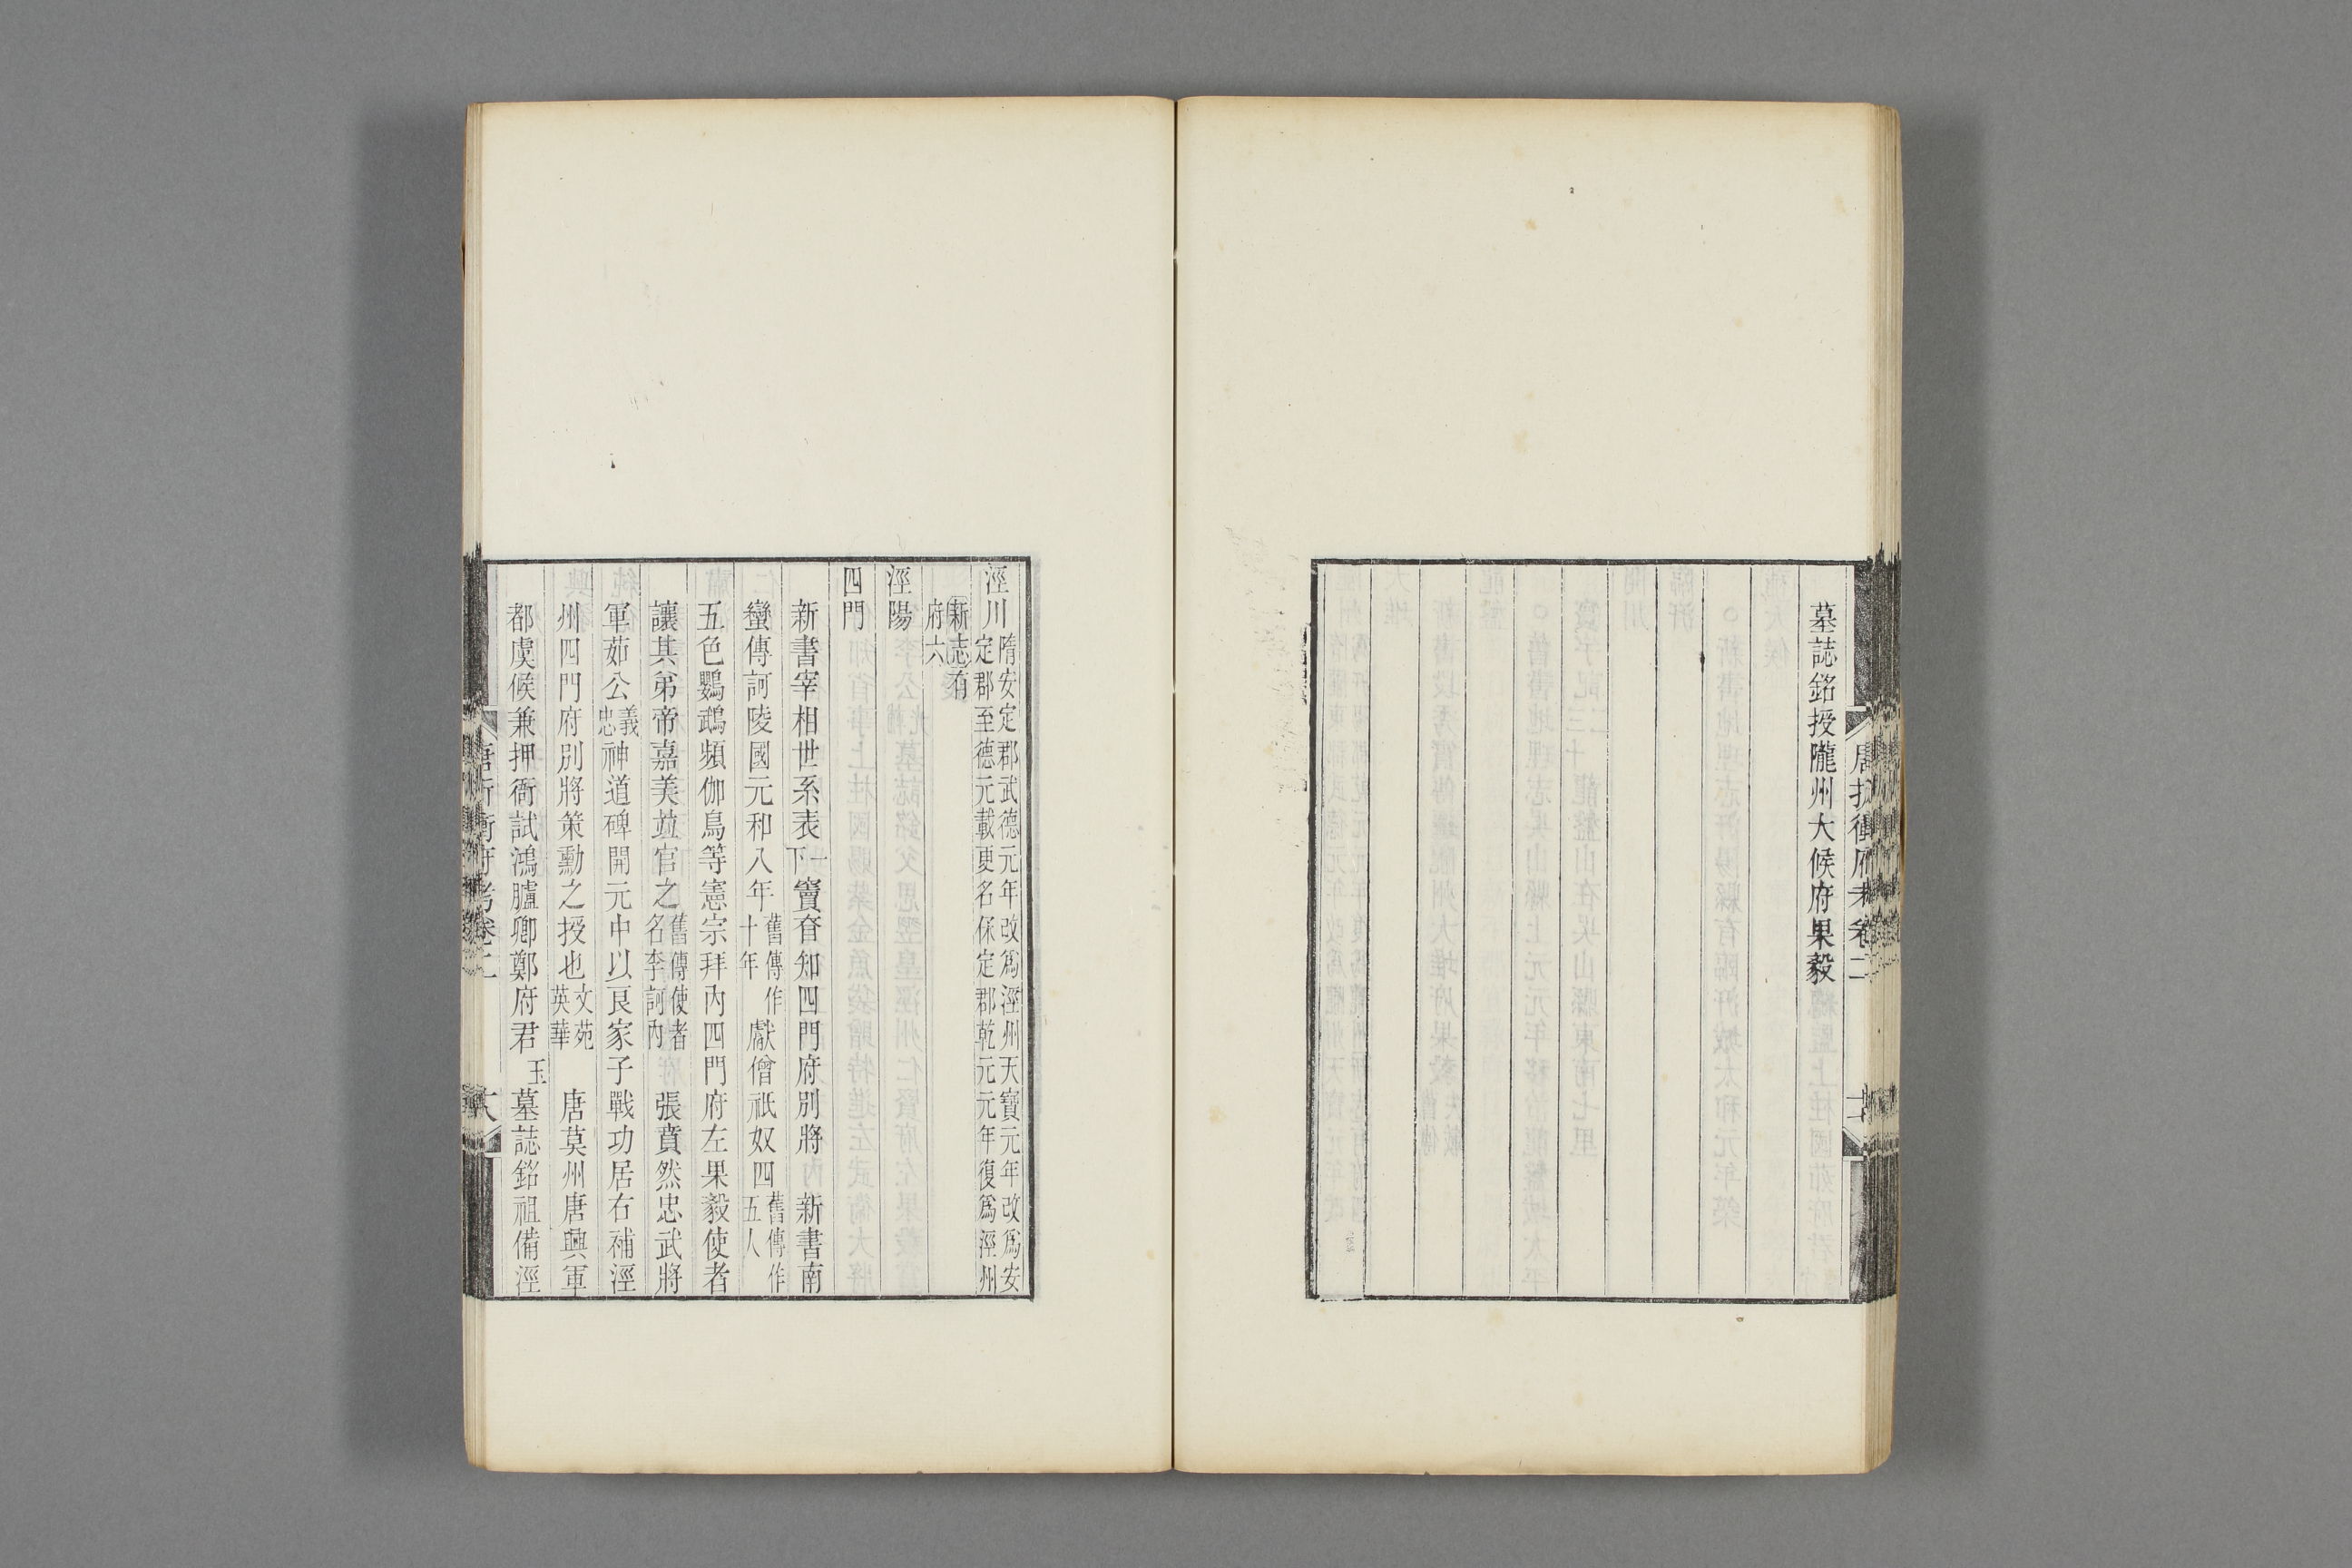 唐折衝府考卷二
墓誌銘授隴州大候府果毅
涇川隋安定郡武德元年改爲涇州天寶元年改爲安
定郡至德元載更名保定郡乾元元年復爲涇州
新志有
府六
涇陽
四門
新書宰相世系表一下竇奝知四門府別將　新書南
蠻傳訶陵國元和八年舊傳作十年獻僧祇奴四舊傳作五人
五色鸚鵡頻伽鳥等憲宗拜內四門府左果毅使者
讓其弟帝嘉美竝官之舊傳使者名李訶內　張賁然忠武將
軍茹公義忠神道碑開元中以良家子戰功居右補涇
州四門府別將策勳之授也文苑英華　唐莫州唐興軍
都虞候兼押衙試鴻臚卿鄭府君玉墓誌銘祖備涇
唐折衝府考卷二